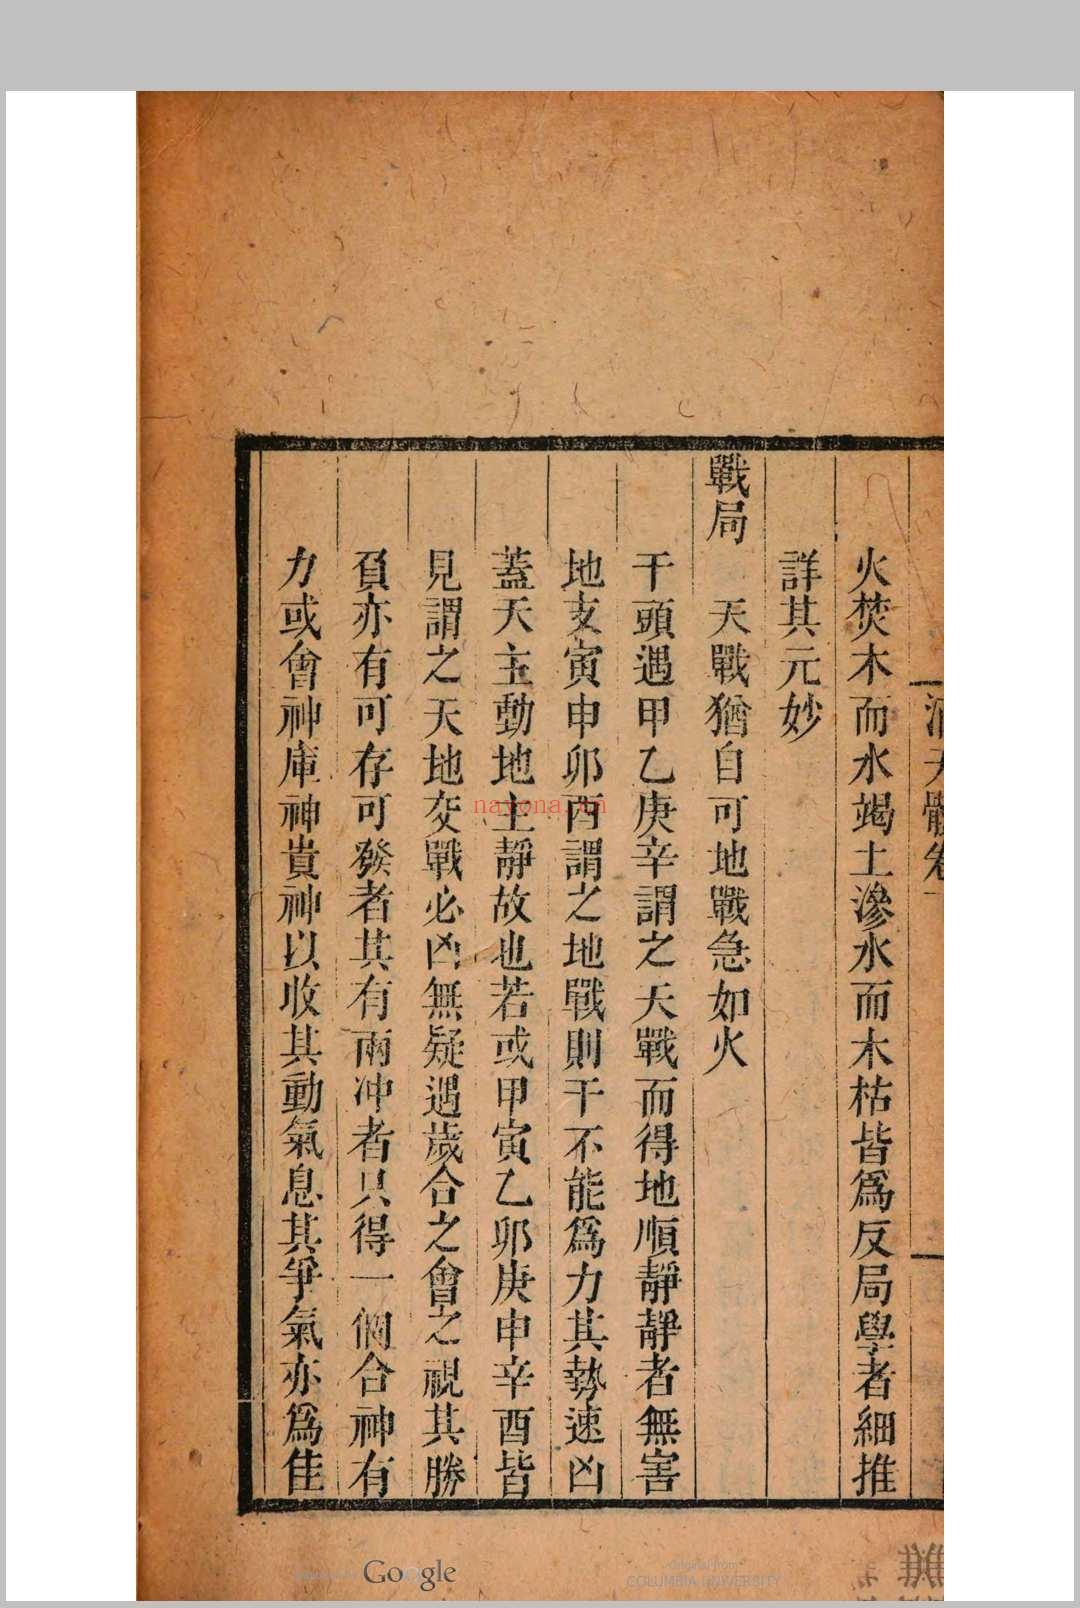 火焚木而水竭土滲水而木枯皆爲反局學者細推
詳其元妙
戰局　天戰猶自可地戰急如火
干頭遇甲乙庚辛謂之天戰而得地順靜靜者無害
地支寅申卯酉謂之地戰則干不能爲力其勢速凶
蓋天主動地主靜故也若或甲寅乙卯庚申辛酉皆
見謂之天地交戰必凶無疑遇歲合之會之視其勝
負亦有可存可發者其有兩冲者只得一個合神有
力或會神庫神貴神以收其動氣息其爭氣亦爲佳
nayona.cn
Google
Original from
COLUMBIA UNIVERSITY